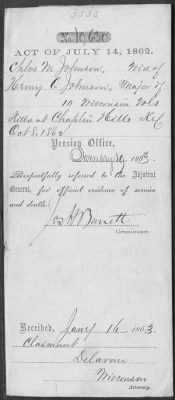 3033
No. 10,650
ACT OF JULY 14, 1862.
Chloe M Johnson, Wid of
Henry E Johnson, Major of
10 Wisconsin Vols
Killed at Chaplin Hills Ky
Oct 8, 1862
Pension Office,
January 19, 1863.
Respectfully referred to the Adjutant
General, for official evidence of service
and death.
Jos H Barrett
Commissioner.
Received, Jany 16 1863.
Claimant
Delavan
Wisconsin
Attorney.